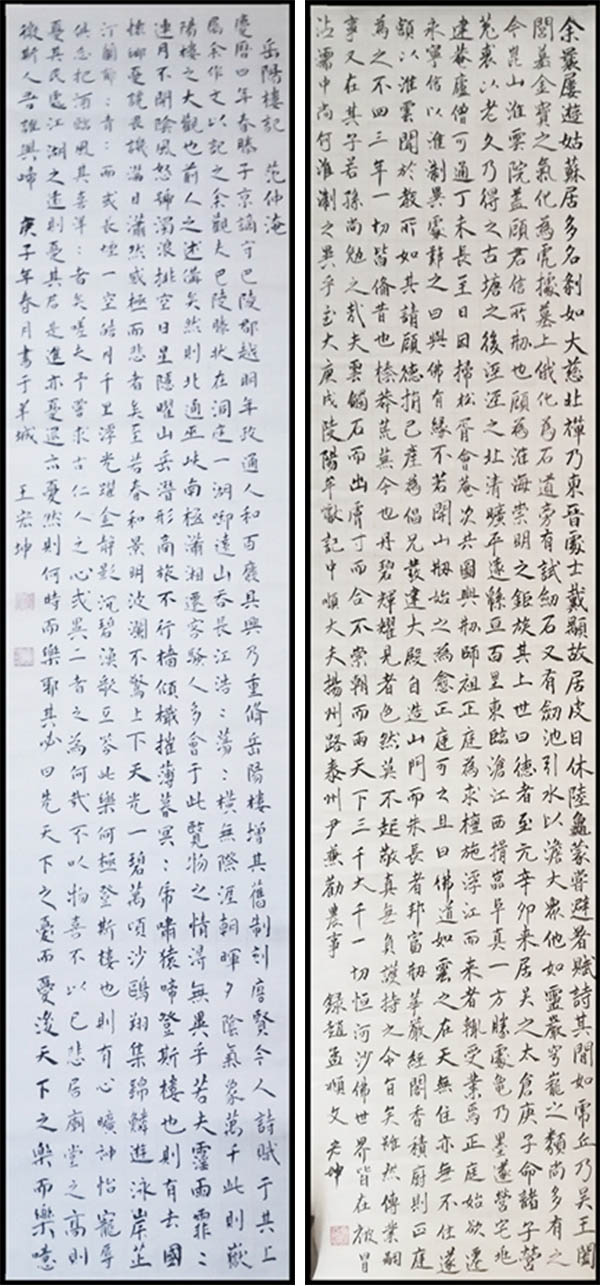 岳陽樓記 范仲淹
慶曆四年春滕子京謫守巴陵郡越明年政通人和百廢具興乃重修岳陽樓增其舊制刻唐賢今人詩賦于其上
屬余作文以記之余觀夫巴陵勝狀在洞庭一湖啣遠山吞長江浩:蕩:橫無際涯朝暉夕陰氣象萬千此則嶽
陽樓之大觀也前人之述備矣然則北通巫峽南極瀟湘遷客騷人多會于此覽物之情得無異乎若夫霪雨霏:
連月不開陰風怒號濁浪排空日星隱曜山岳潛形商旅不行檣傾檝摧薄暮冥:虎嘯猿啼登斯樓也則有去國
懷鄉憂讒畏譏滿目蕭然感極而悲者矣至若春和景明波瀾不驚上下天光一碧萬頃沙鷗翔集錦鱗遊泳岸芷
汀蘭郁:青:而或長煙一空皓月千里浮光躍金靜影沉碧漁歌互答此樂何極登斯樓也則有心曠神怡寵辱
俱忘把酒臨風其喜洋:者矣嗟夫予嘗求古仁人之心或異二者之為何哉不以物喜不以己悲居廟堂之高則
憂其民處江湖之遠則憂其君是進亦憂退亦憂然則何時而樂耶其必曰先天下之憂而憂後天下之樂而樂噫
微斯人吾誰與歸 庚子年春月書于羊城 王宏坤
余囊屢遊姑蘇居多名剎如大慈北禪乃東晉處士戴顒故居皮日休陸龜蒙嘗避暑賦詩其間如虎丘乃吳王闔
閭墓金寶之氣化為虎據墓上俄化為石道旁有試劒石又有劒池引水以澹大眾他如靈巖穹窿之類尚多有之
今崑山淮雲院蓋顧君信所刱也顧為淮海崇明之鉅族其上世曰德者至元辛卯來居吳之太倉庚子命諸子營
菟裘以老久乃得之古塘之後涇涇之北清曠平遠緜亘百里東臨滄江西揖崑阜真一方勝處龜乃墨遂營宅兆
建菴廬僧可通丁未長至日因掃松胥會菴次共圖興刱師祖正庭為求檀施浮江而來者執受業焉正庭始欲遷
永寧信以淮制異處辭之曰與佛有緣不若開山刱始之為愈正庭可之且曰佛道如雲之在天無住亦無不住遂
額以淮雲聞於教所如其請顧德捐己產為倡兄發建大殿自造山門而朱長者邦富刱華嚴經閣香積廚則正庭
為之不四三年一切皆脩昔也榛莽荒蕪今也丹碧輝耀見者色然莫不起敬真無負護持之令旨矣雖然傳業嗣
事又在其子若孫尚勉之哉夫雲觸石而出膚寸而合不崇朝而雨天下三千大千一切恒河沙佛世界皆在被冒
沾霈中尚何淮制之異乎至大庚戌陵陽牟巘記中順大夫揚州路泰州尹兼勸農事 錄趙孟頫文 宏坤